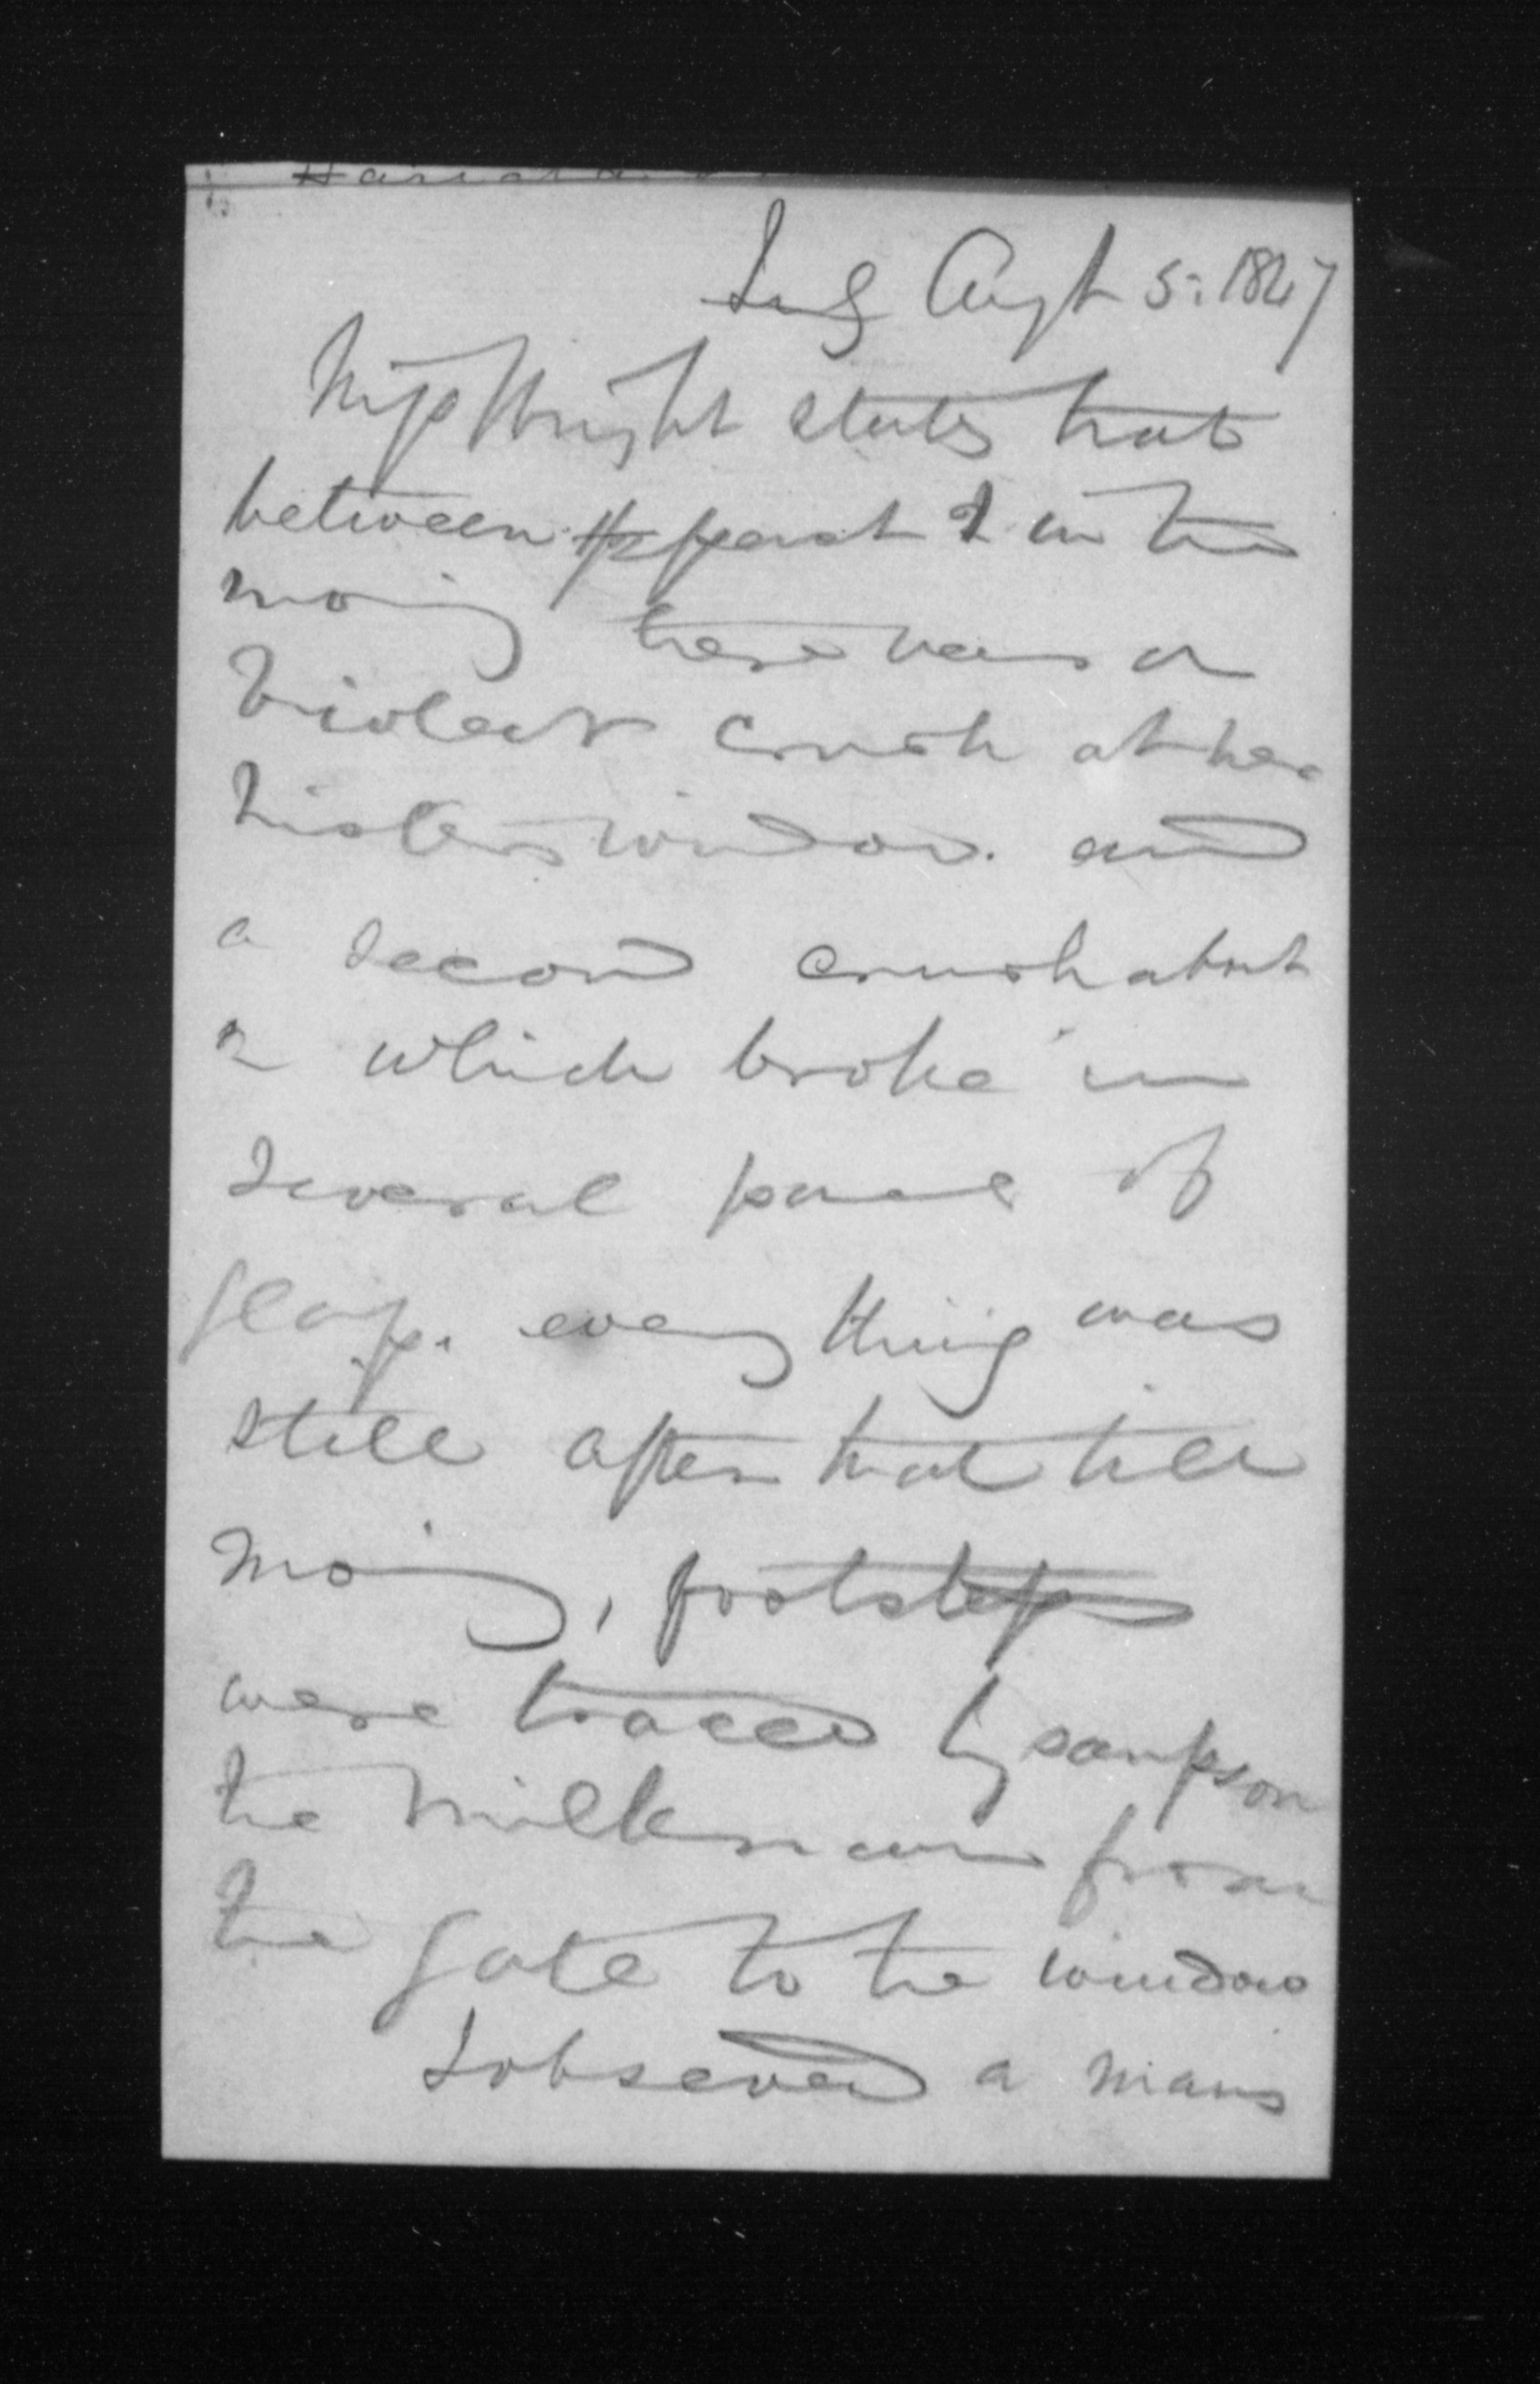 Augt 5: 1847
Miss Wright states that
between past 1 in the
morning there was a
violent crush at her
sisters window. and
a second crush about
2 which broke in
several pane of
glass. every thing was
still after that till
morning, footsteps
were traced by sampson
the Milkman from
the gate to the window
I observed a mans